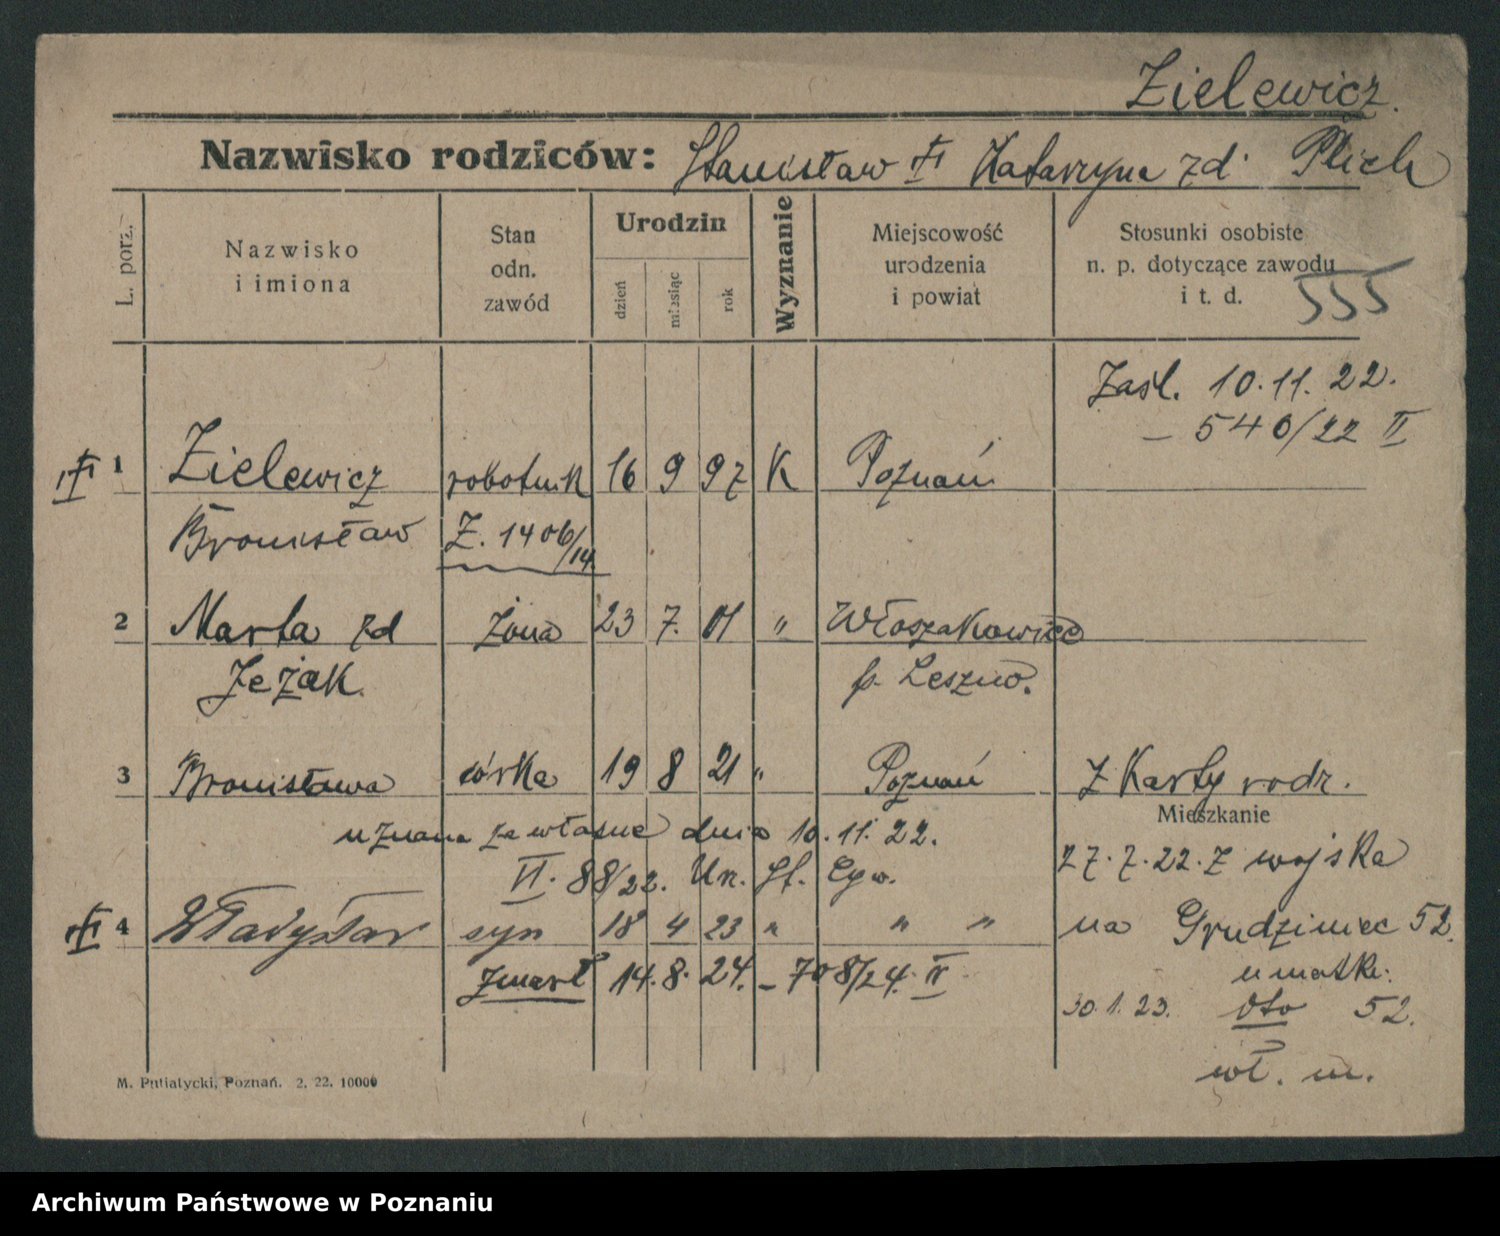 Zielewicz.
Nazwisko rodziców: Stanisław Katarzyna zd. Plich
L. porz.
Nazwisko
i imiona
Stan
odn.
zawód
Urodzin
dzień
miesiąc
rok
Wyznanie
Miejscowość
urodzenia
i powiat
Stosunki osobiste
n. p. dotyczące zawodu
i t. d.
555
Zaśl. 10.11.22.
– 540/22 II
1 Zielewicz robotnik 16 9 97 K Poznań
Bronisław Z. 1406/14
2 Marta zd żona 23 7. 01 " Włoszakowice
Jeżak. p. Leszno.
3 Bronisława córka 19 8 21 " Poznań Z Karty rodz.
Mieszkanie
uznana za własne dnia 10.11.22.
VI. 88/22. Un. St. Cyw.
27.7.22. Z wojska
4 Władysław syn 18 4 23 " " " na Grudziniec 52.
zmarł 14.8.24. – 708/24. IV
u matki.
30.1.23. Oto 52.
wł. m.
M. Putiatycki, Poznań. 2. 22. 10000
Archiwum Państwowe w Poznaniu